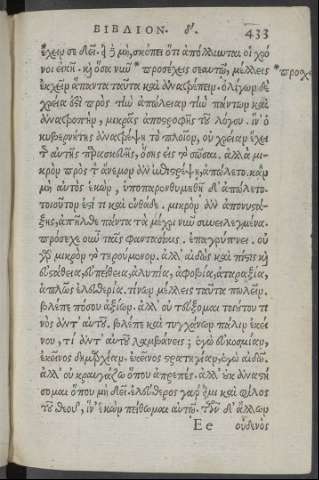 ΒΙΒΛΙΟΝ. δ'. 433
ἔχειν σε δεῖ. εἰ δὲ μή, σκόπει ὅτι ἀπόλλυνται οἱ χρό
νοι ἐκεῖ. καὶ ὅσα νῦν * προσέχεις σεαυτῷ, μέλλεις * προσχ
ἐκχεῖν ἅπαντα ταῦτα καὶ ἀνατρέπειν. ὀλίγου δὲ
χρεία ἐστὶ πρὸς τὴν ἀπώλειαν τὴν πάντων καὶ
ἀνατροπὴν, μικρᾶς ἀποστροφῆς τοῦ λόγου. ἵνα ὁ
κυβερνήτης ἀνατρέψῃ τὸ πλοῖον, οὐ χρείαν ἔχει
τῆς αὐτῆς παρασκευῆς, ὅσης εἰς τὸ σῶσαι. ἀλλὰ μι-
κρὸν πρὸς τὸν ἄνεμον ἂν ἐπιστρέψῃ, ἀπώλετο. κἂν
μὴ αὐτὸς ἑκὼν, ὑποπαρενθυμηθῇ δ' ἀπώλετο.
τοιοῦτον ἐστί τι καὶ ἐνθάδε. μικρὸν ἂν ἀπονυστά-
ξῃς, ἀπῆλθε πάντα τὰ μέχρι νῦν συνειλεγμένα.
πρόσεχε οὖν ταῖς φαντασίαις. ἐπαγρύπνει. οὐ
γὰρ μικρὸν τὸ τηρούμενον. ἀλλ' αἰδὼς καὶ πίστις καὶ
εὐστάθεια, ἀπάθεια, ἀλυπία, ἀφοβία, ἀταραξία,
ἁπλῶς ἐλευθερία. τίνων μέλλεις ταῦτα πωλεῖν.
βλέπε πόσου ἀξίων. ἀλλ' οὐ τεύξομαι τοιούτου τι
νὸς ἀντ' αὐτοῦ. βλέπε καὶ τυγχάνων πάλιν ἐκεί
νου, τί ἀντ' αὐτοῦ λαμβάνεις; ἐγὼ εὐκοσμίαν,
ἐκεῖνος δημαρχίαν. ἐκεῖνος στρατηγίαν, ἐγὼ αἰδῶ.
ἀλλ' οὐ κραυγάζω ὅπου ἀπρεπές. ἀλλ' οὐκ ἀναστή
σομαι ὅπου μὴ δεῖ. ἐλεύθερος γάρ εἰμι καὶ φίλος
τοῦ θεοῦ, ἵν' ἑκὼν πείθωμαι αὐτῷ. τῶν δ' ἄλλων
Ee οὐδενὸς